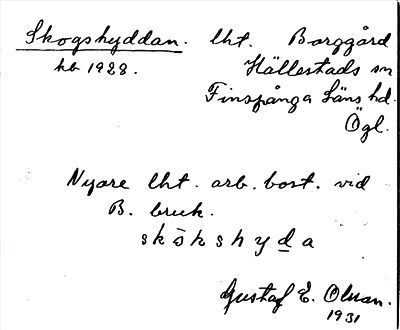 Skogshyddan. lht. Borggård
kb 1928. Hällestads sn
Finspånga Läns hd.
Ögl.
Nyare lht. arb. bost. vid
B. bruk.
skŏkshyḏa
Gustaf E. Olsson.
1931